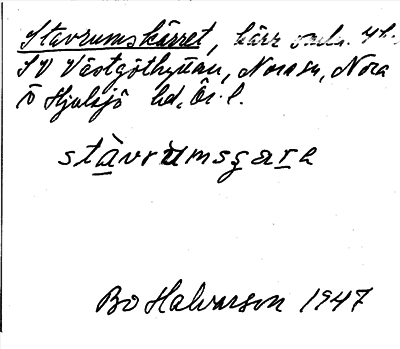 Stavrumskärret, kärr
SV Västgöthyttan, Nora sn, Nora
Ö Hjulsjö hd, Ör. l.
stàvrùmsçara
Bo Halvarson 1947